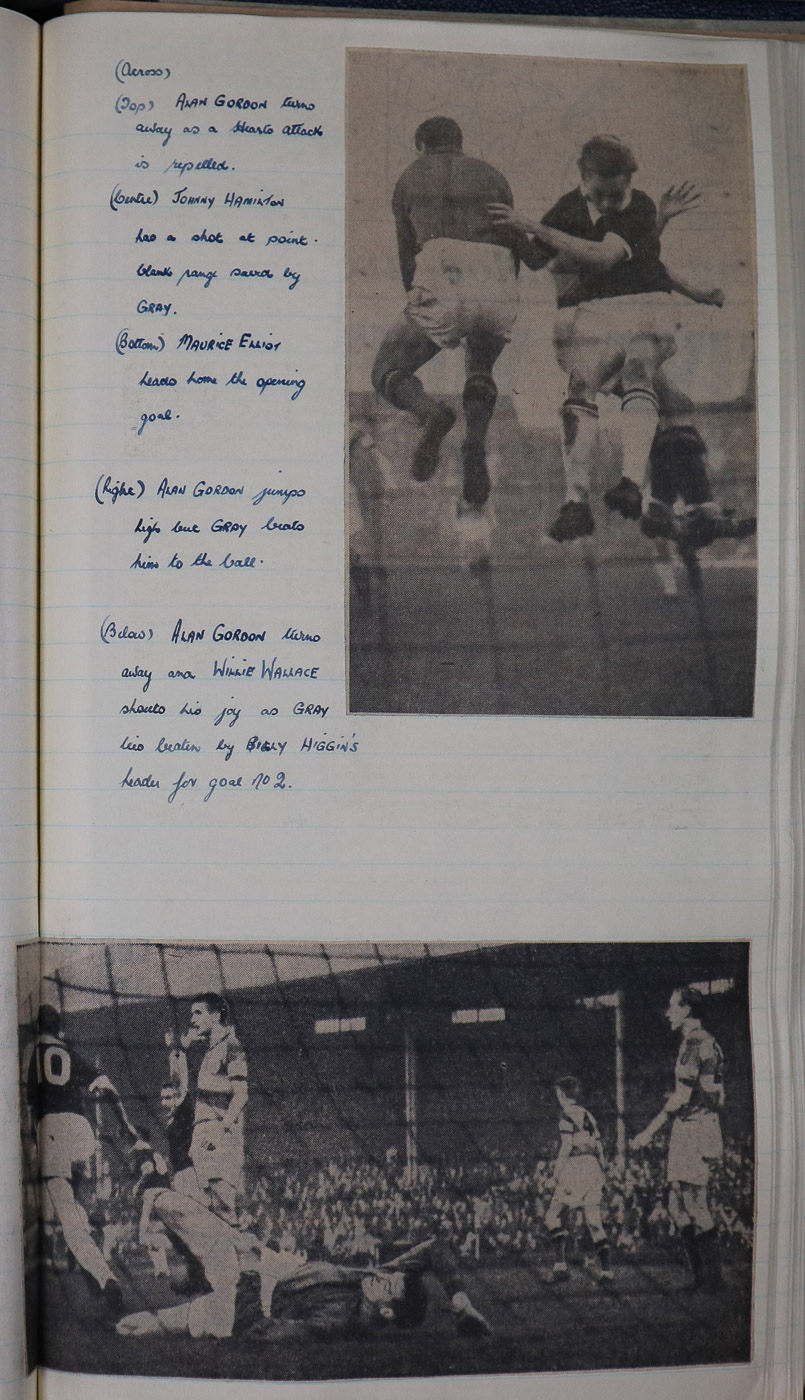 (Across)
(Top) ALAN GORDON turns
away as a Hearts attack
is repelled.
(Centre) JOHNNY HAMILTON
has a shot at point-
blank range saved by
GRAY.
(Bottom) MAURICE ELLIOT
heads home the opening
goal.
(Right) ALAN GORDON jumps
high but GRAY beats
him to the ball.
(Below) ALAN GORDON turns
away and WILLIE WALLACE
shouts his joy as GRAY
lies beaten by BILLY HIGGIN'S
header for goal no 2.
10